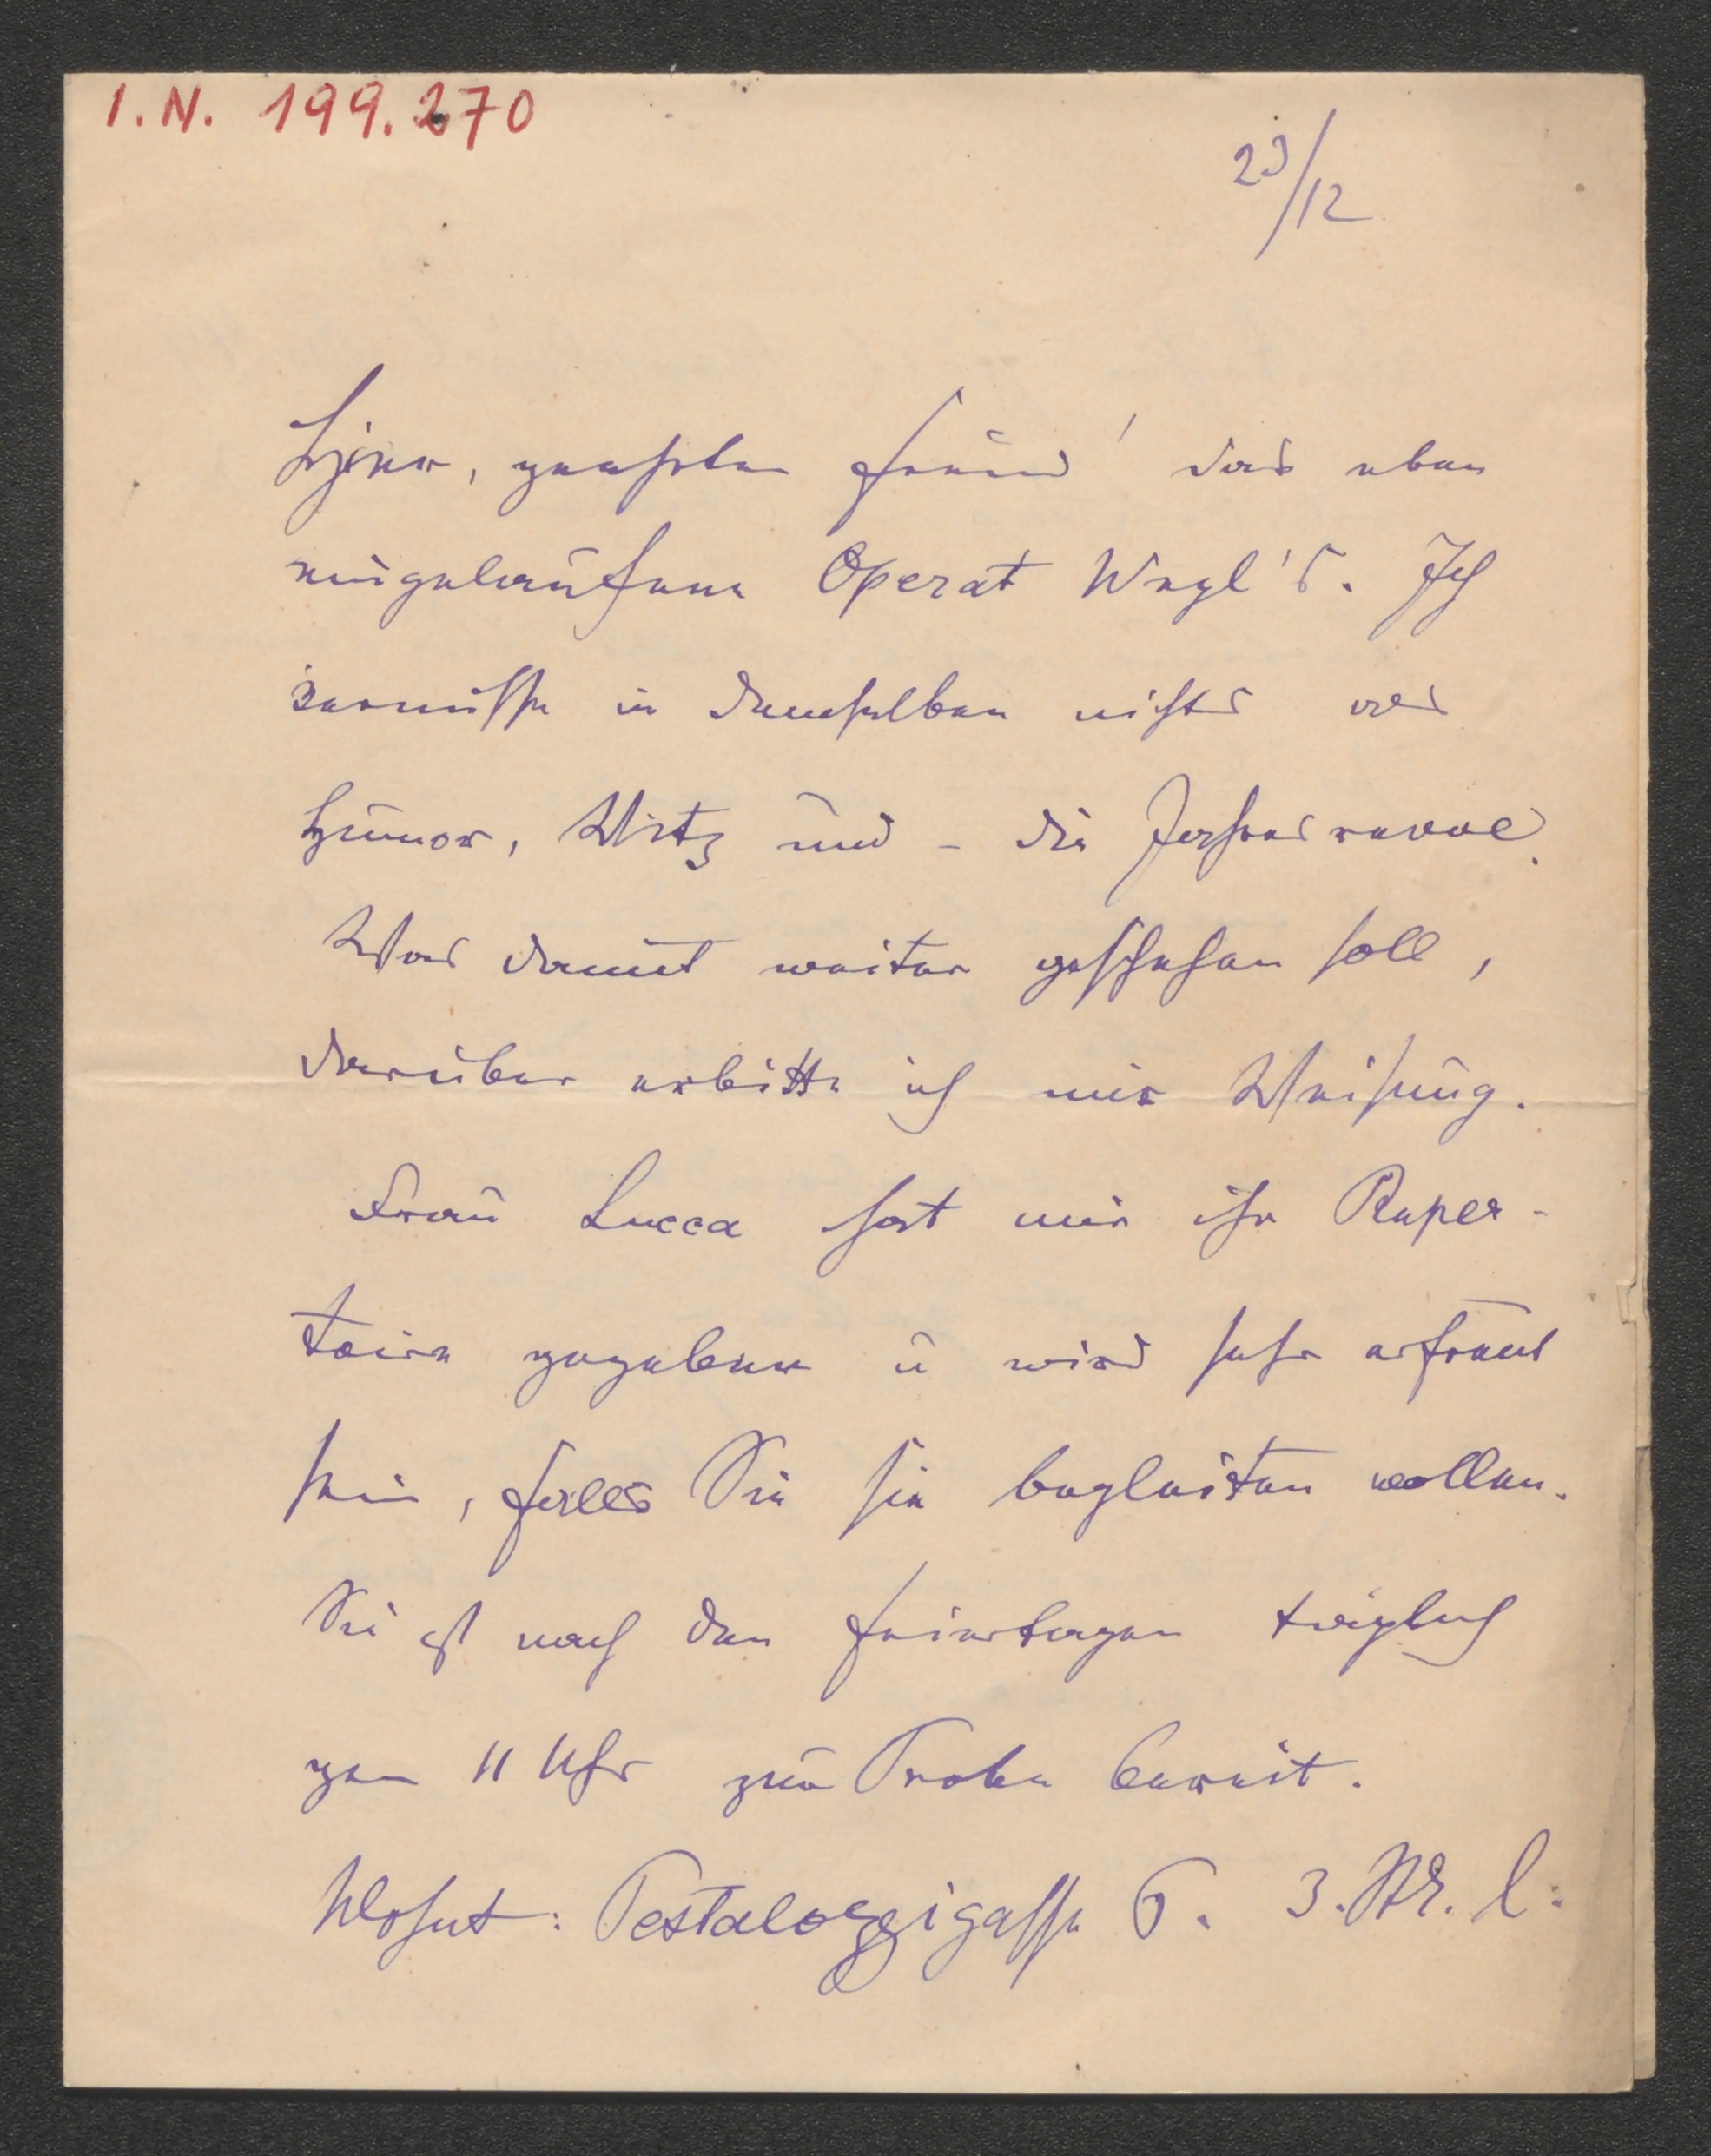 I.N. 199.270
23/12
Hier, geehrter Freund! das eben
eingelaufene Operat Weyl's. Ich
vermisse in demselben nichts als
Humor, Witz und - die Jahresrevue.
Was damit weiter geschehen soll,
darüber erbitte ich mir Weisung.
Frau Lucca hat mir ihr Reper-
toire gegeben u wird sehr erfreut
sein, falls Sie sie begleiten wollen.
Sie ist nach den Feiertagen täglich
gen 11 Uhr zur Probe bereit.
Wohnt: Pestalozzigasse 6. 3. St. l.